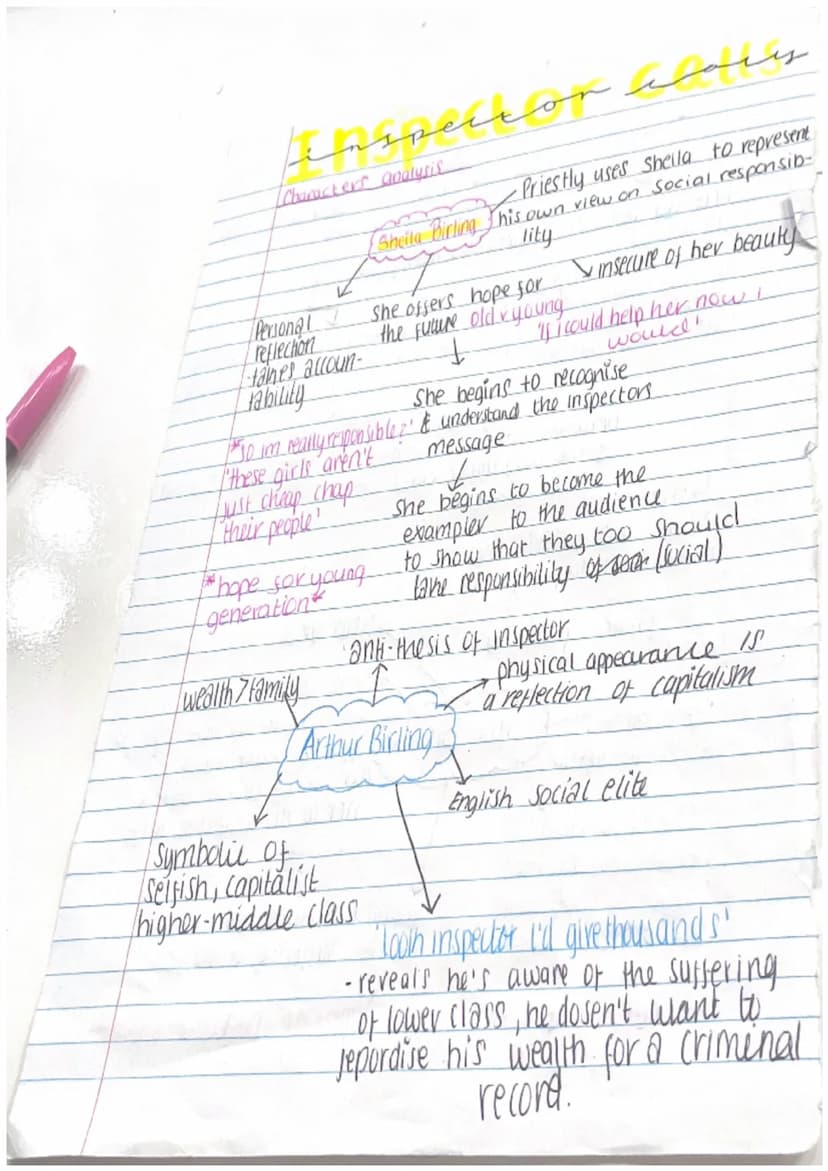 Inspector calls
inspector calls
Characters analysis
Sheila Birling
Priestly uses Sheila to represent
his own view on social responsib-
lity
insecure of her beauty
Personal
reflection
-takes accoun-
tability
She offers hope for
the future old v young
'if i could help her now i
would'
She begins to recognise
& understand the inspectors
message
*'so im really responsible?'
'these girls aren't
just cheap
their people'
She begins to become the
exampler to the audience
to show that they too should
take responsibility of (social)
*hope for young
generation*
anti-thesis of inspector
wealth > family
physical appearance is
a reflection of capitalism
Arthur Birling
English social elite
Symbolic of
selfish, capitalist
higher-middle class
'look inspector I'd give thousands'
-reveals he's aware of the suffering
of lower class, he dosen't want to
jepordise his wealth for a criminal
record.